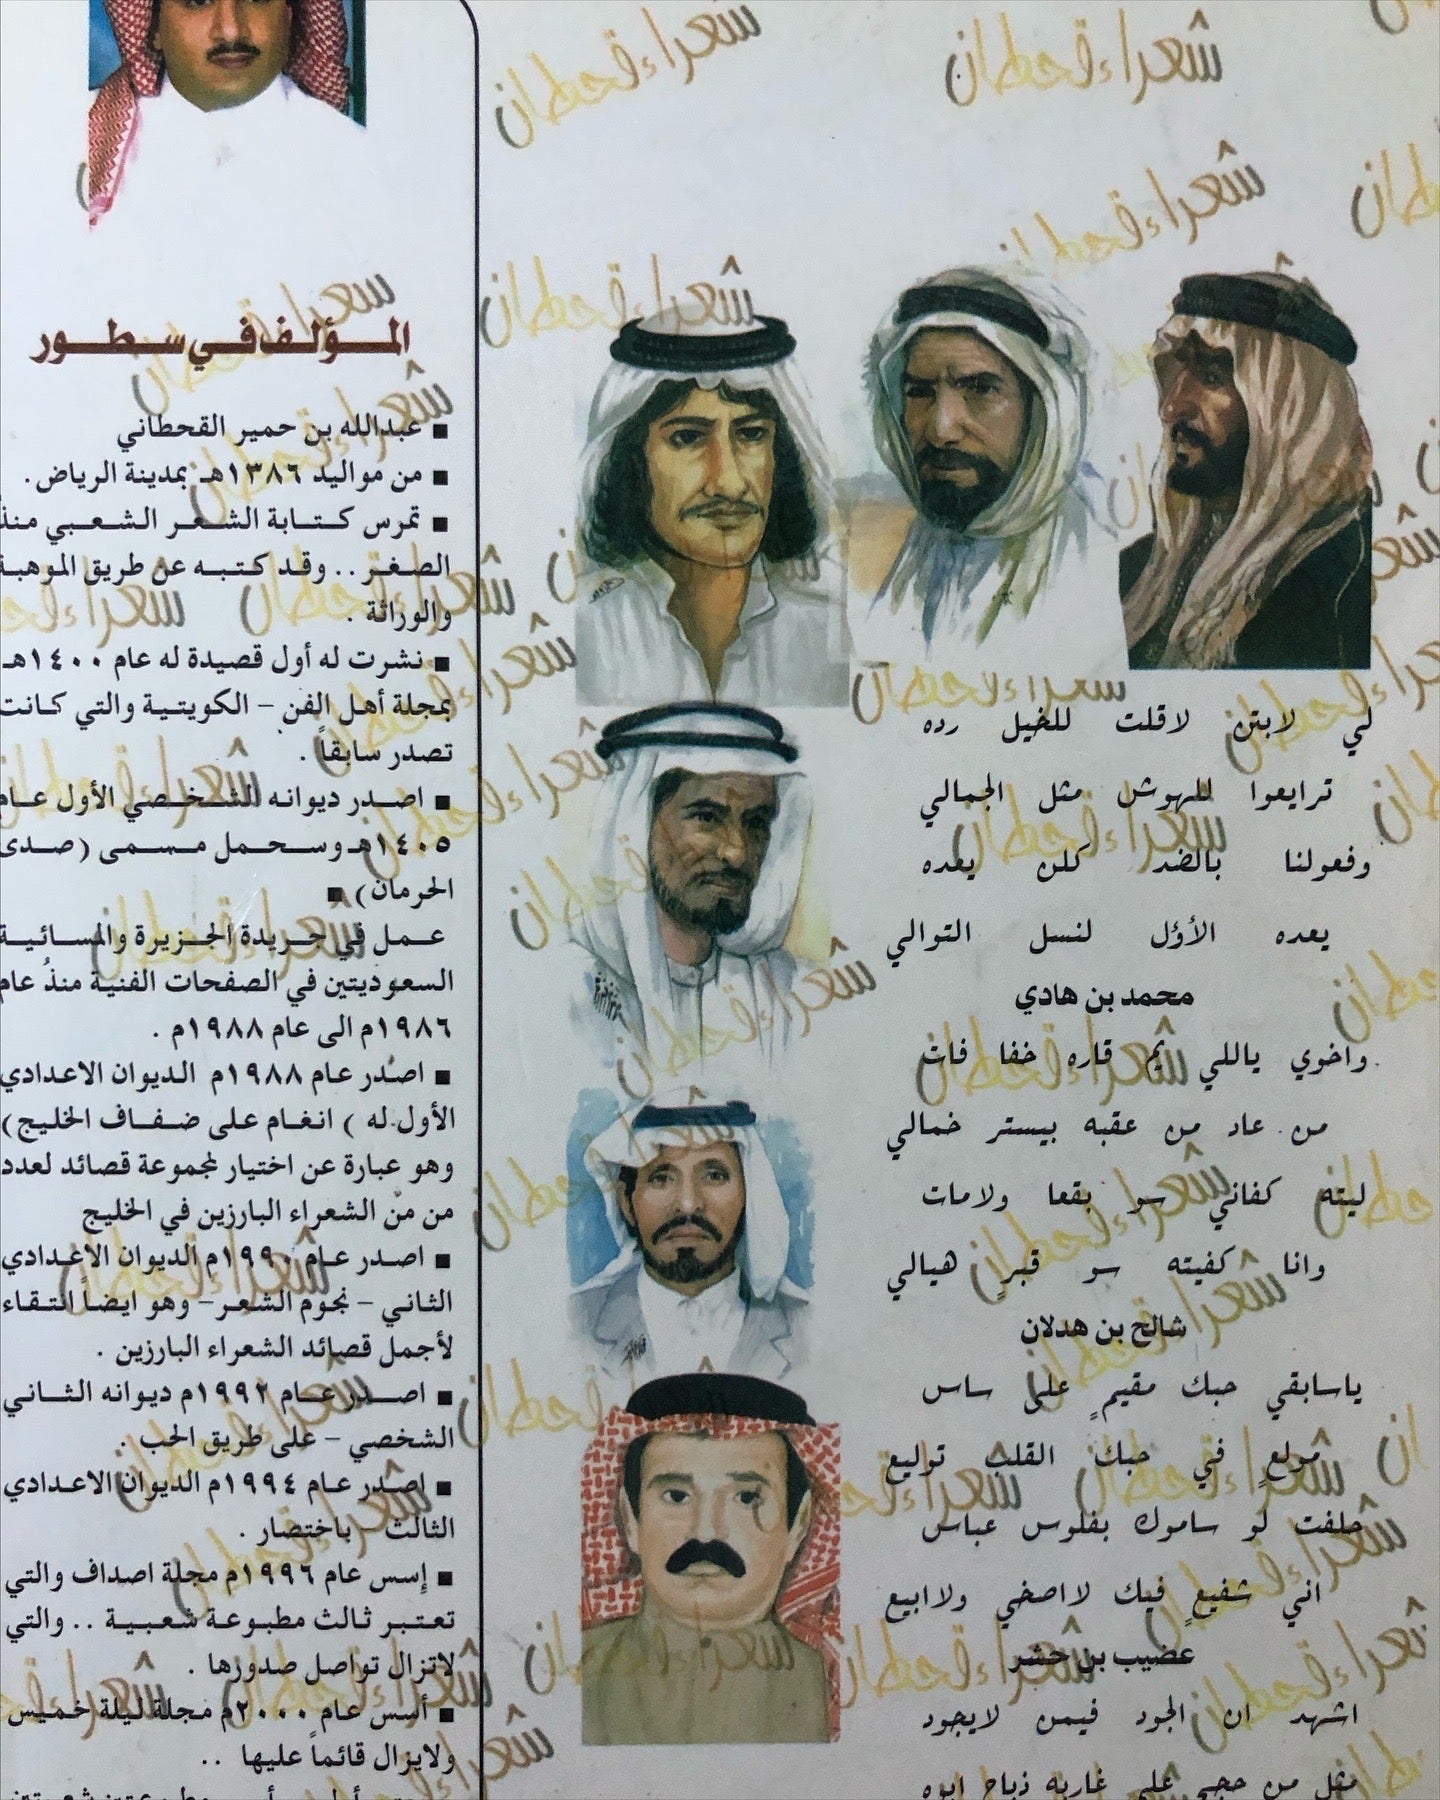 لي لابتن لاقلت للخيل رده
ترايعوا للهوش مثل الجمالي
وفعولنا بالضد كلن يعده
يعده الأوّل لنسل التوالي
محمد بن هادي
واخوي ياللي يم قاره خفا فات
من عاد من عقبه بيستر خمالي
ليته كفاني سو بقعا ولامات
وانا كفيته سو قبرٍ هيالي
شالح بن هدلان
ياسابقي حبك مقيمٍ على ساس
مولعٍ في حبك القلب توليع
حلفت لو ساموك بفلوس عباس
اني شفيعٍ فيك لااصخي ولاابيع
عضيب بن حشر
اشهد ان الجود فيمن لايجود
مثل من حجي على غاربه ذباح ابوه
المؤلف في سطور
■ عبدالله بن حمير القحطاني
■ من مواليد ١٣٨٦هـ بمدينة الرياض.
■ تمرس كتابة الشعر الشعبي منذُ
الصغر .. وقد كتبه عن طريق الموهبة
والوراثة .
■ نشرت له أول قصيدة له عام ١٤٠٠هـ
بمجلة أهل الفن – الكويتية والتي كانت
تصدر سابقاً .
■ اصدر ديوانه الشخصي الأول عام
١٤٠٥هـ وسحمل مسمى (صدى
الحرمان) ■
عمل في جريدة الجزيرة والمسائية
السعوديتين في الصفحات الفنية منذُ عام
١٩٨٦م الى عام ١٩٨٨م .
■ اصدر عام ١٩٨٨م الديوان الاعدادي
الأول له ) انغام على ضفاف الخليج)
وهو عبارة عن اختيار لمجموعة قصائد لعدد
من منّ الشعراء البارزين في الخليج
■ اصدر عام ١٩٩٠م الديوان الاعدادي
الثاني – نجوم الشعر– وهو ايضاً التقاء
لأجمل قصائد الشعراء البارزين .
■ اصدر عام ١٩٩٢م ديوانه الثاني
الشخصي – على طريق الحب .
■ اصدر عام ١٩٩٤م الديوان الاعدادي
الثالث باختصار .
■ إسس عام ١٩٩٦م مجلة اصداف والتي
تعتبر ثالث مطبوعة شعبية .. والتي
لاتزال تواصل صدورها .
■ أسس عام ٢٠٠٠م مجلة ليلة خميس
ولايزال قائماً عليها ..
شعراء قحطان